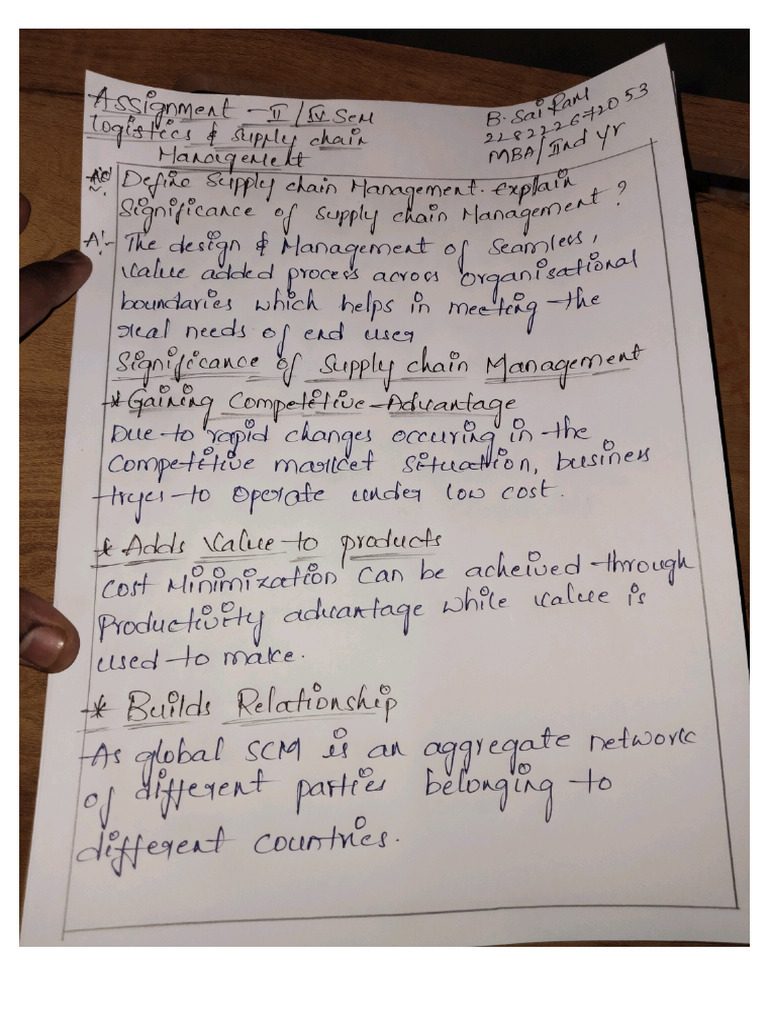 Assignment - II / IV Sem
Logistics & Supply chain
Management
B. Sai Ram
228222672053
MBA/IInd yr
Define Supply chain Management. Explain
Significance of supply chain Management?
A:- The design & Management of Seamless,
Value added process across organisational
boundaries which helps in meeting the
real needs of end user
Significance of Supply chain Management
* Gaining Competitive Advantage
Due to rapid changes occuring in the
Competitive market situation, business
tryes to operate under low cost.
* Adds Value to products
Cost Minimization can be acheived through
Productivity advantage while value is
used to make.
* Builds Relationship
As global SCM is an aggregate network
of different parties belonging to
different countries.